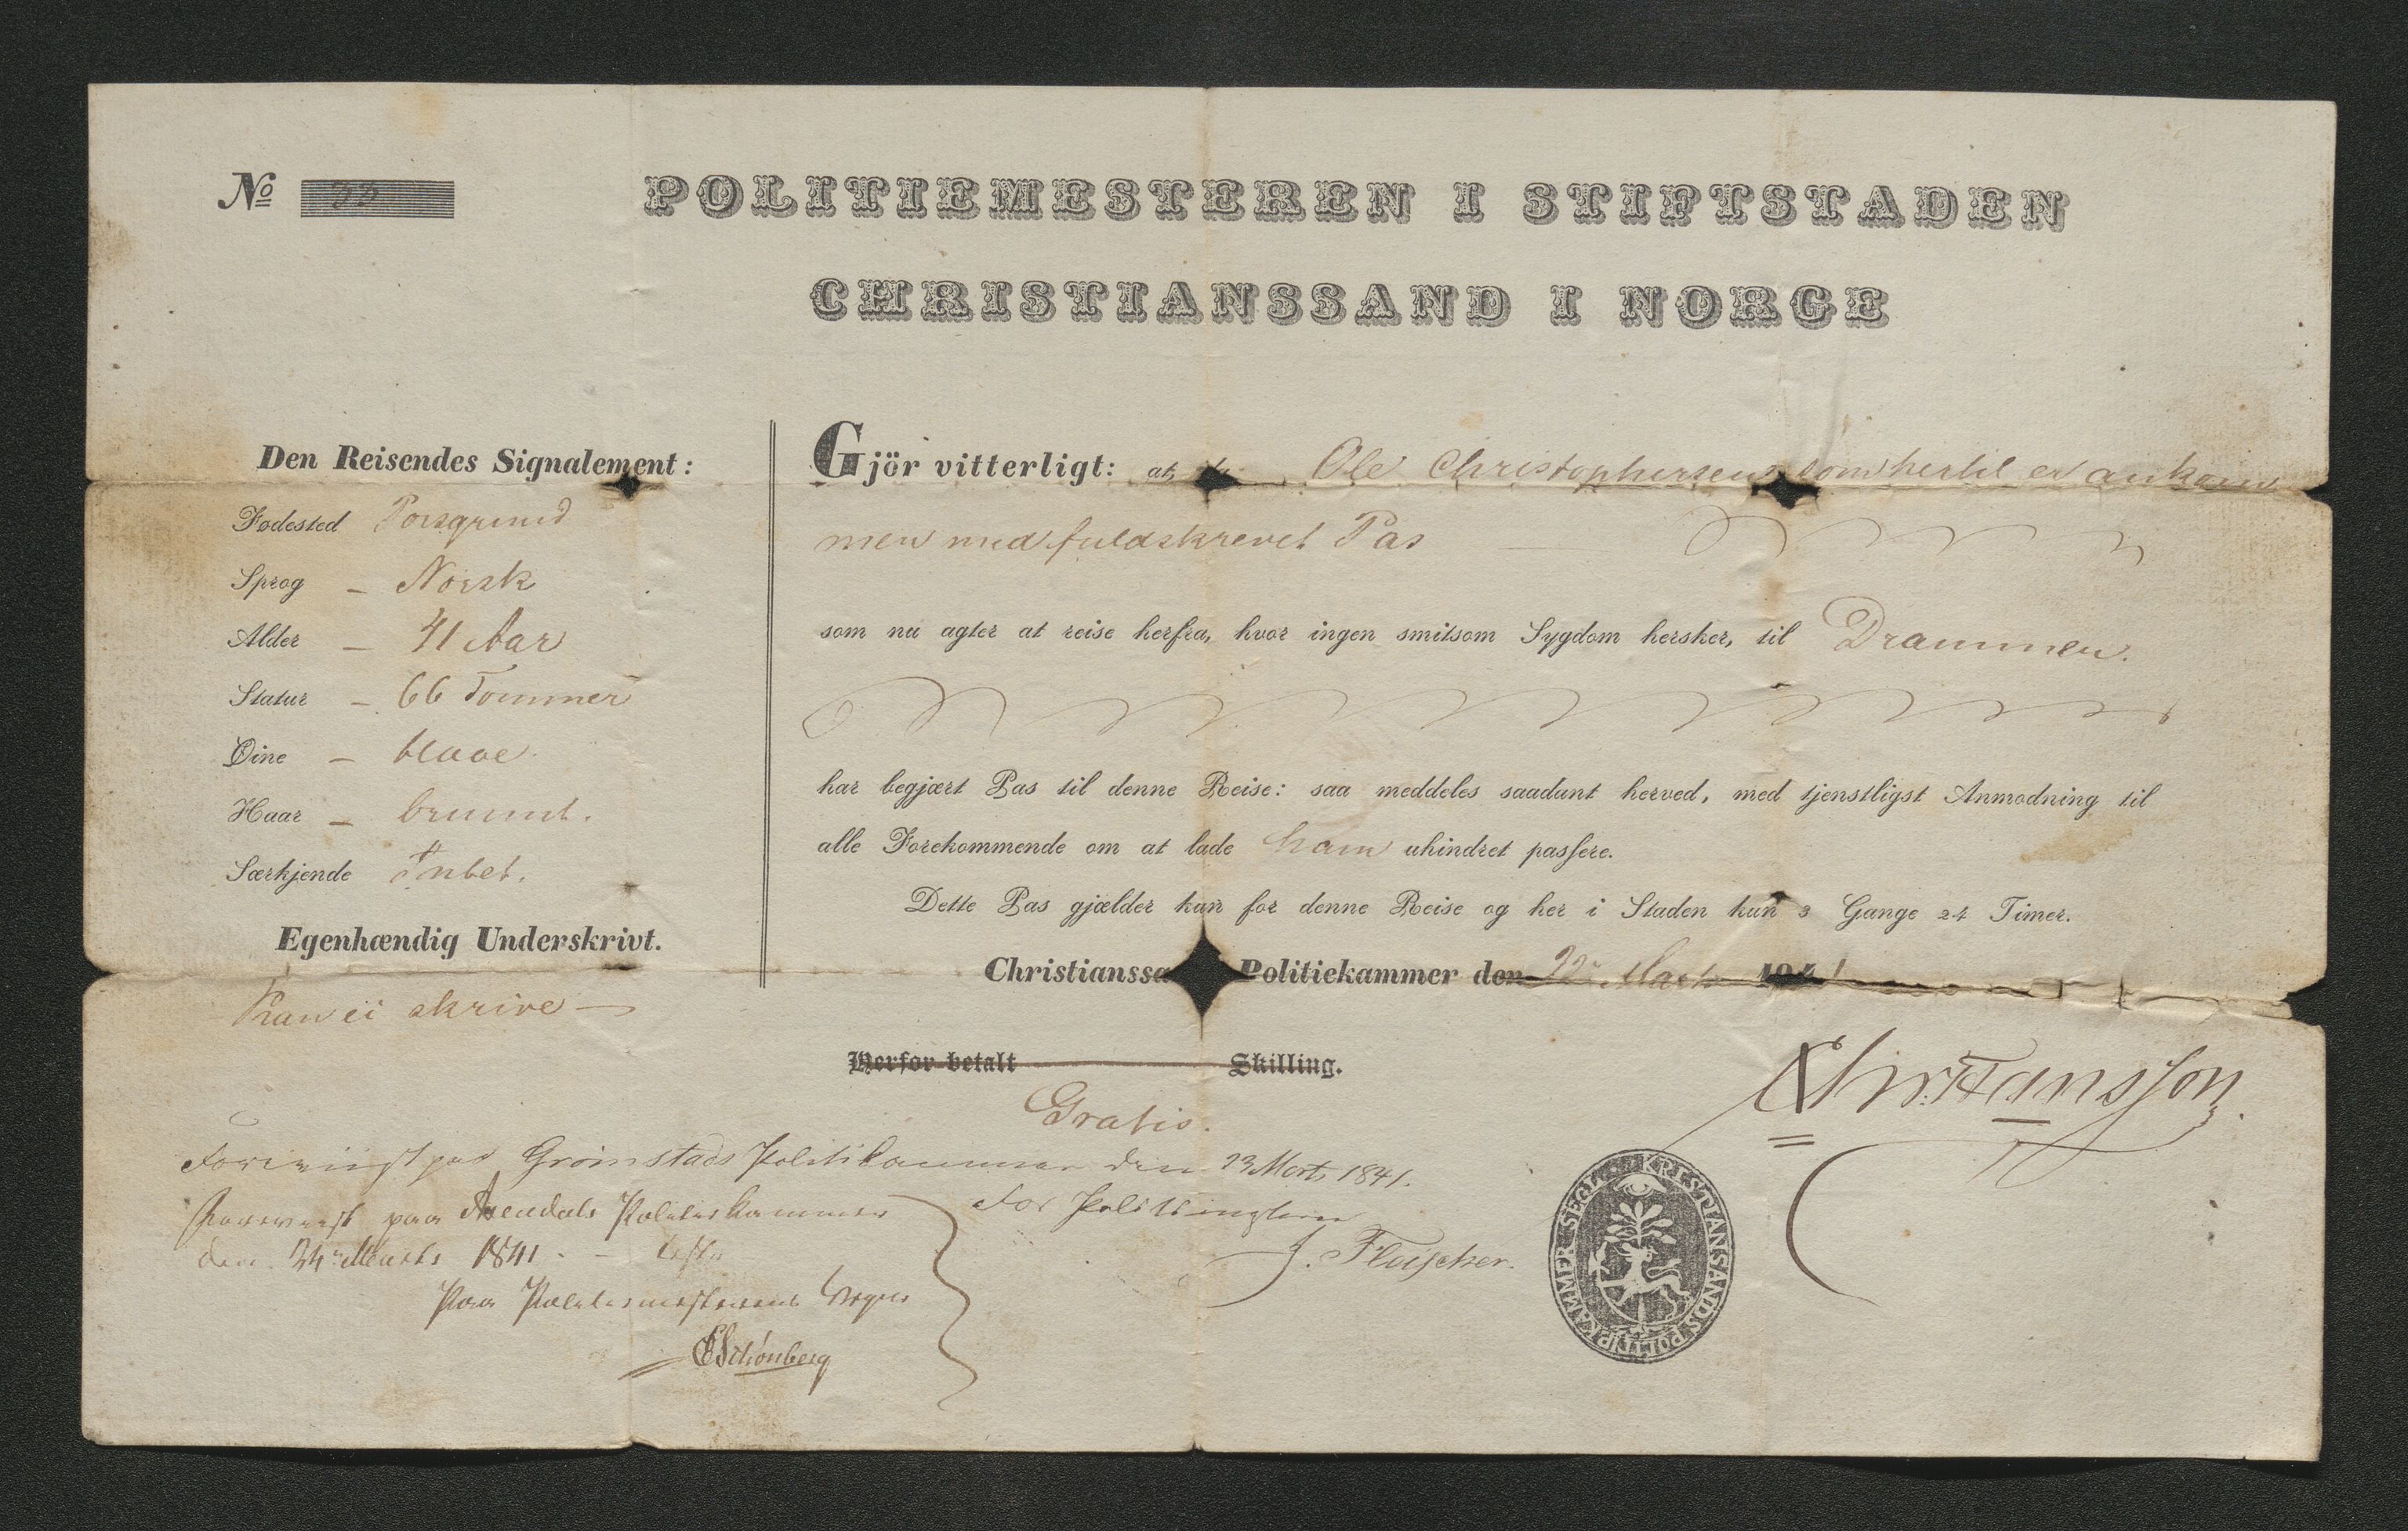 No 33
POLITIEMESTEREN I STIFTSTADEN
CHRISTIANSSAND I NORGE
Den Reisendes Signalement:
Fødested Porsgrund
Sprog – Norsk
Alder – 41 Aar
Statur – 66 Tommer
Øine – blaae
Haar – bruunt.
Særkjende Intet.
Egenhændig Underskrivt.
Kan ei skrive –
Gjör vitterligt: at, Ole Christophersen som hertil er ankom
men med fuldskrevet Pas
som nu agter at reise herfra, hvor ingen smitsom Sygdom hersker, til Drammen.
har begjært Pas til denne Reise: saa meddeles saadant herved, med tjenstligst Anmodning til
alle Forekommende om at lade ham uhindret passere.
Dette Pas gjælder kun for denne Reise og her i Staden kun 3 Gange 24 Timer.
Christianssa Politiekammer den 22 Marts 1841
Herfor betalt Skilling.
Gratis.
Christiansson
Foreviist paa Grimstads Politikammer den 23 Marts 1841.
For Politimesteren
J. Fleischer.
Foreviist paa Arendals Politiekammer
den 24 Marts 1841. –
Paa Politiemesterens Vegne
CSchönberg
KRISTIANSANDS POLITIKAMMER SEGL